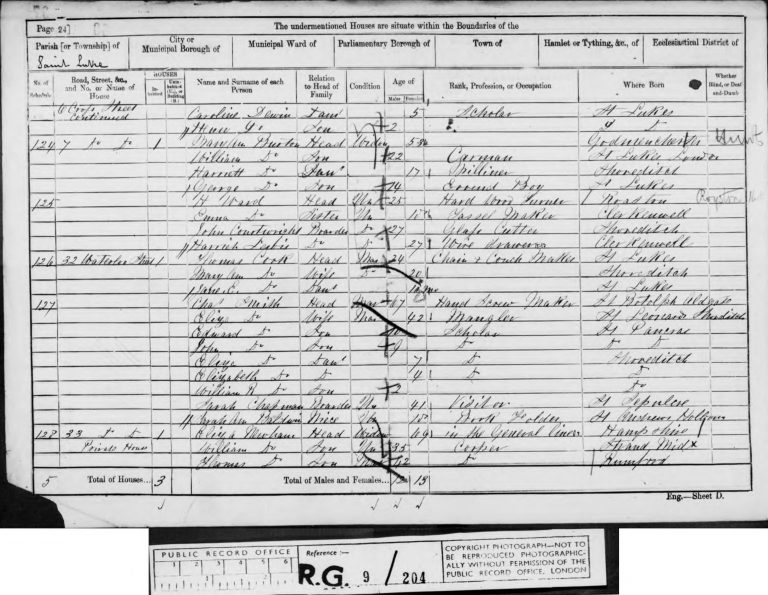 Page 24] The undermentioned Houses are situate within the Boundaries of the
Parish [or Township] of City or Municipal Borough of Municipal Ward of Parliamentary Borough of Town of Hamlet or Tything, &c., of Ecclesiastical District of
Saint Luke
No. of Schedule Road, Street, &c., and No. or Name of House HOUSES Inhabited Uninhabited (U.), or Building (B.) Name and Surname of each Person Relation to Head of Family Condition Age of Males Females Rank, Profession, or Occupation Where Born Whether Blind, or Deaf-and-Dumb
continued Caroline Daur 5 Scholar St Lukes
Do Son 2 Do
124 7 Do Do 1 Head Widow 53 Hunts
William Do Son 22 Carman St Lukes London
Harriett Do Daur 17 Milliner Shoreditch
George Do Son 14 Errand Boy St Lukes
125 H Ward Head Un 25 Hard Wood Turner
Emma Do Sister Un Tassel Maker Clerkenwell
John Boarder Do 27 Glass Cutter Shoreditch
Do Do 27 Clerkenwell
126 32 Waterloo 1 Thomas Cook Head Mar 24 Chair & Couch Maker St Lukes
Mary Ann Do Wife Do 20 Shoreditch
Do Daur St Lukes
127 Chas Smith Head Mar 67 Hand Screw Maker St Botolph Aldgate
Eliza Do Wife Mar 42 Mangler St Leonard Shoreditch
Edward Do Son Scholar St Pancras
John Do Son 9 Do Do
Eliza Do Daur 7 Do Shoreditch
Elizabeth Do Do 4 Do Do
William Do Son 2 Do
Sarah Chapman Boarder Un 41 Visitor St Sepulcre
Sarah Ann Baldwin Niece Un 18 Book Folder St Andrews Holborn
128 33 Do Do 1 Eliza Head Widow 69 in the General Hampshire
Private House William Do Son Un 35 Cooper Strand Midx
Thomas Do Son Do Rumford
5 Total of Houses... 3 Total of Males and Females... 12 13
Eng.—Sheet D.
PUBLIC RECORD OFFICE
1 2 3 4 5 6
Reference :—
R.G. 9 / 204
COPYRIGHT PHOTOGRAPH—NOT TO
BE REPRODUCED PHOTOGRAPHIC-
ALLY WITHOUT PERMISSION OF THE
PUBLIC RECORD OFFICE, LONDON